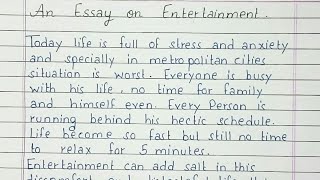 An Essay on Entertainment.
Today life is full of stress and anxiety
and specially in metropolitan cities
situation is worst. Everyone is busy
with his life, no time for family
and himself even. Every Person is
running behind his hectic schedule.
Life become so fast but still no time
to relax for 5 minutes.
Entertainment can add salt in this